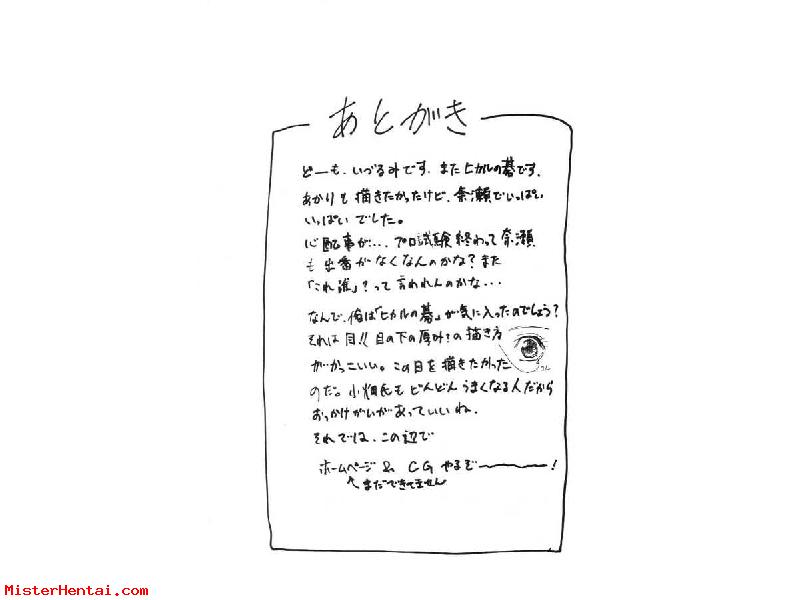 あとがき
どーも、いづるみです。またヒカルの碁です。
あかりも描きたかったけど、奈瀬でいっぱい
いっぱいでした。
心配事が…、プロ試験終わって奈瀬
も出番がなくなんのかな？また
「これ誰」？って言われんのかな…
なんで、俺は「ヒカルの碁」が気に入ったのでしょう？
それは目!!目の下の厚み？の描き方
がかっこいい。この目を描きたかった
のだ。小畑氏もどんどんうまくなる人だから
おっかけがいがあっていいね。
それでは、この辺で
ホームページ & CG やるぞー！
まだできてません
MisterHentai.com